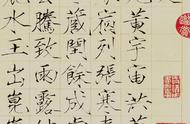 黃宇宙洪荒
宿列張寒來
藏閏餘成歲
騰致雨露結
水玉出崑